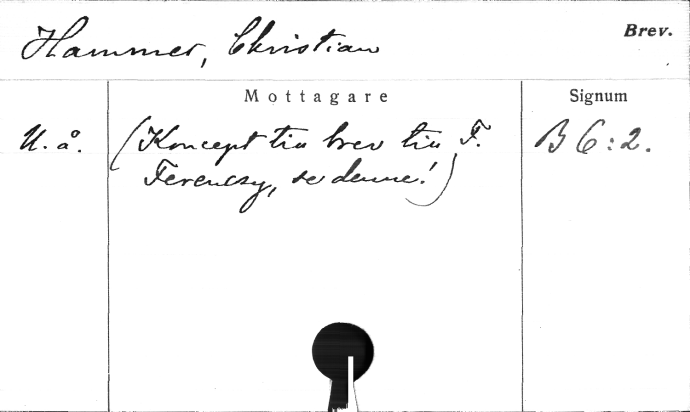 Hammer, Christian
Brev.
Mottagare
Signum
U. å.
(Koncept till brev till F.
B 6:2.
Ferenczy, se denne!)